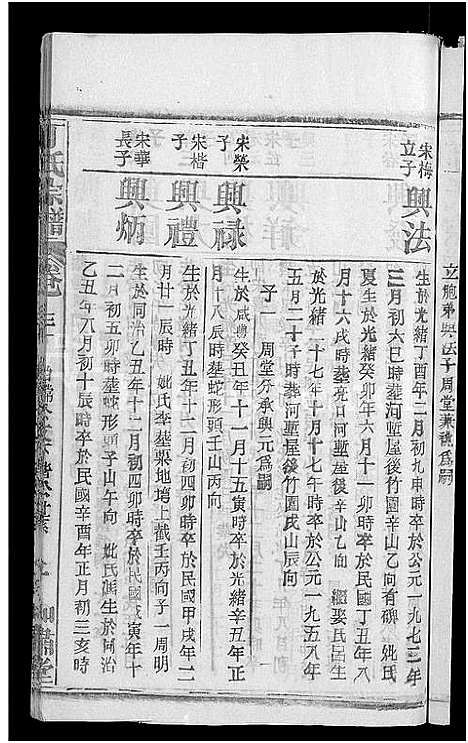 立胞弟興法子周堂兼祧爲嗣
宋梅立子 興法
生於光緒丁酉年二月初九申時卒於公元一九七二年
三月初六巳時葬河塹屋後竹園辛山乙向有碑 妣氏
夏生於光緒癸卯年六月十一卯時卒於民國丁丑年八
月十六戌時葬 河塹屋後辛山乙向 繼娶氏呂生
於光緒二十七年十月十七午時卒於公元一九五九年
五月二十子時葬河塹屋後竹園戌山辰向
子一 周堂分承興元爲嗣
宋榮子 興祿
生於咸豐癸丑年十一月十五寅時卒於光緒辛丑年正
月十八辰時葬蛇形頭壬山丙向
宋楷子 興禮
生於光緒丁丑年十二月初四卯時卒於民國甲戌年二
月廿一辰時 妣氏李葬栗地塆上截壬丙向子一周明
宋華長子 興炳
生於同治乙丑年十二月初四卯時卒於民國戊寅年十
二月初五卯時葬 形子山午向 妣氏 生於同治
乙丑年八月初十辰時卒於民國辛酉年正月初三亥時
氏宗譜